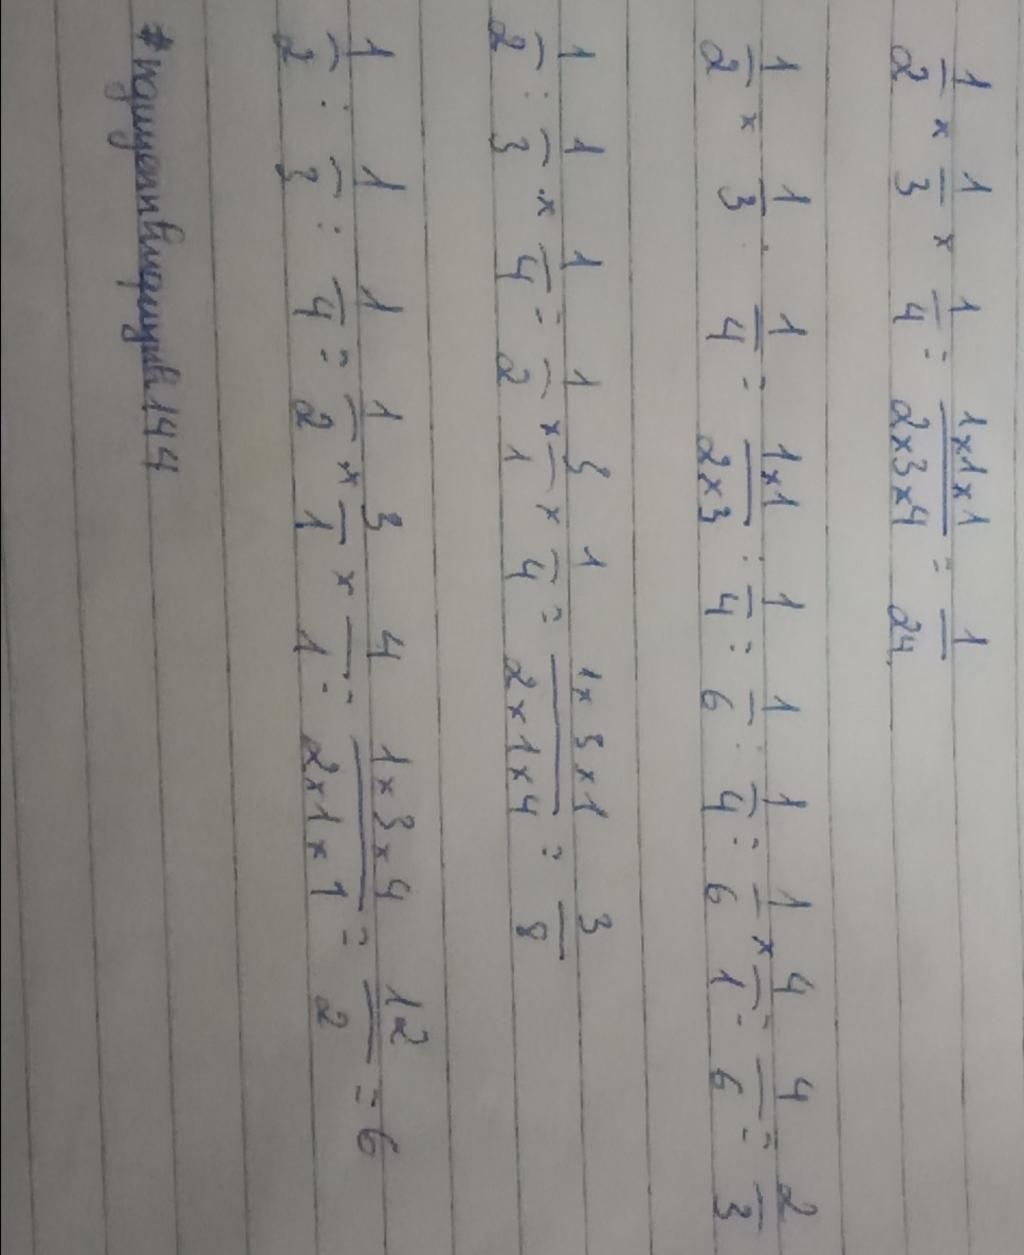 1/2 × 1/3 × 1/4 = 1×1×1/2×3×4 = 1/24
1/2 × 1/3 : 1/4 = 1×1/2×3 : 1/4 = 1/6 : 1/4 = 1/6 × 4/1 = 4/6 = 2/3
1/2 : 1/3 × 1/4 = 1/2 × 3/1 × 1/4 = 1×3×1/2×1×4 = 3/8
1/2 : 1/3 : 1/4 = 1/2 × 3/1 × 4/1 = 1×3×4/2×1×1 = 12/2 = 6
144